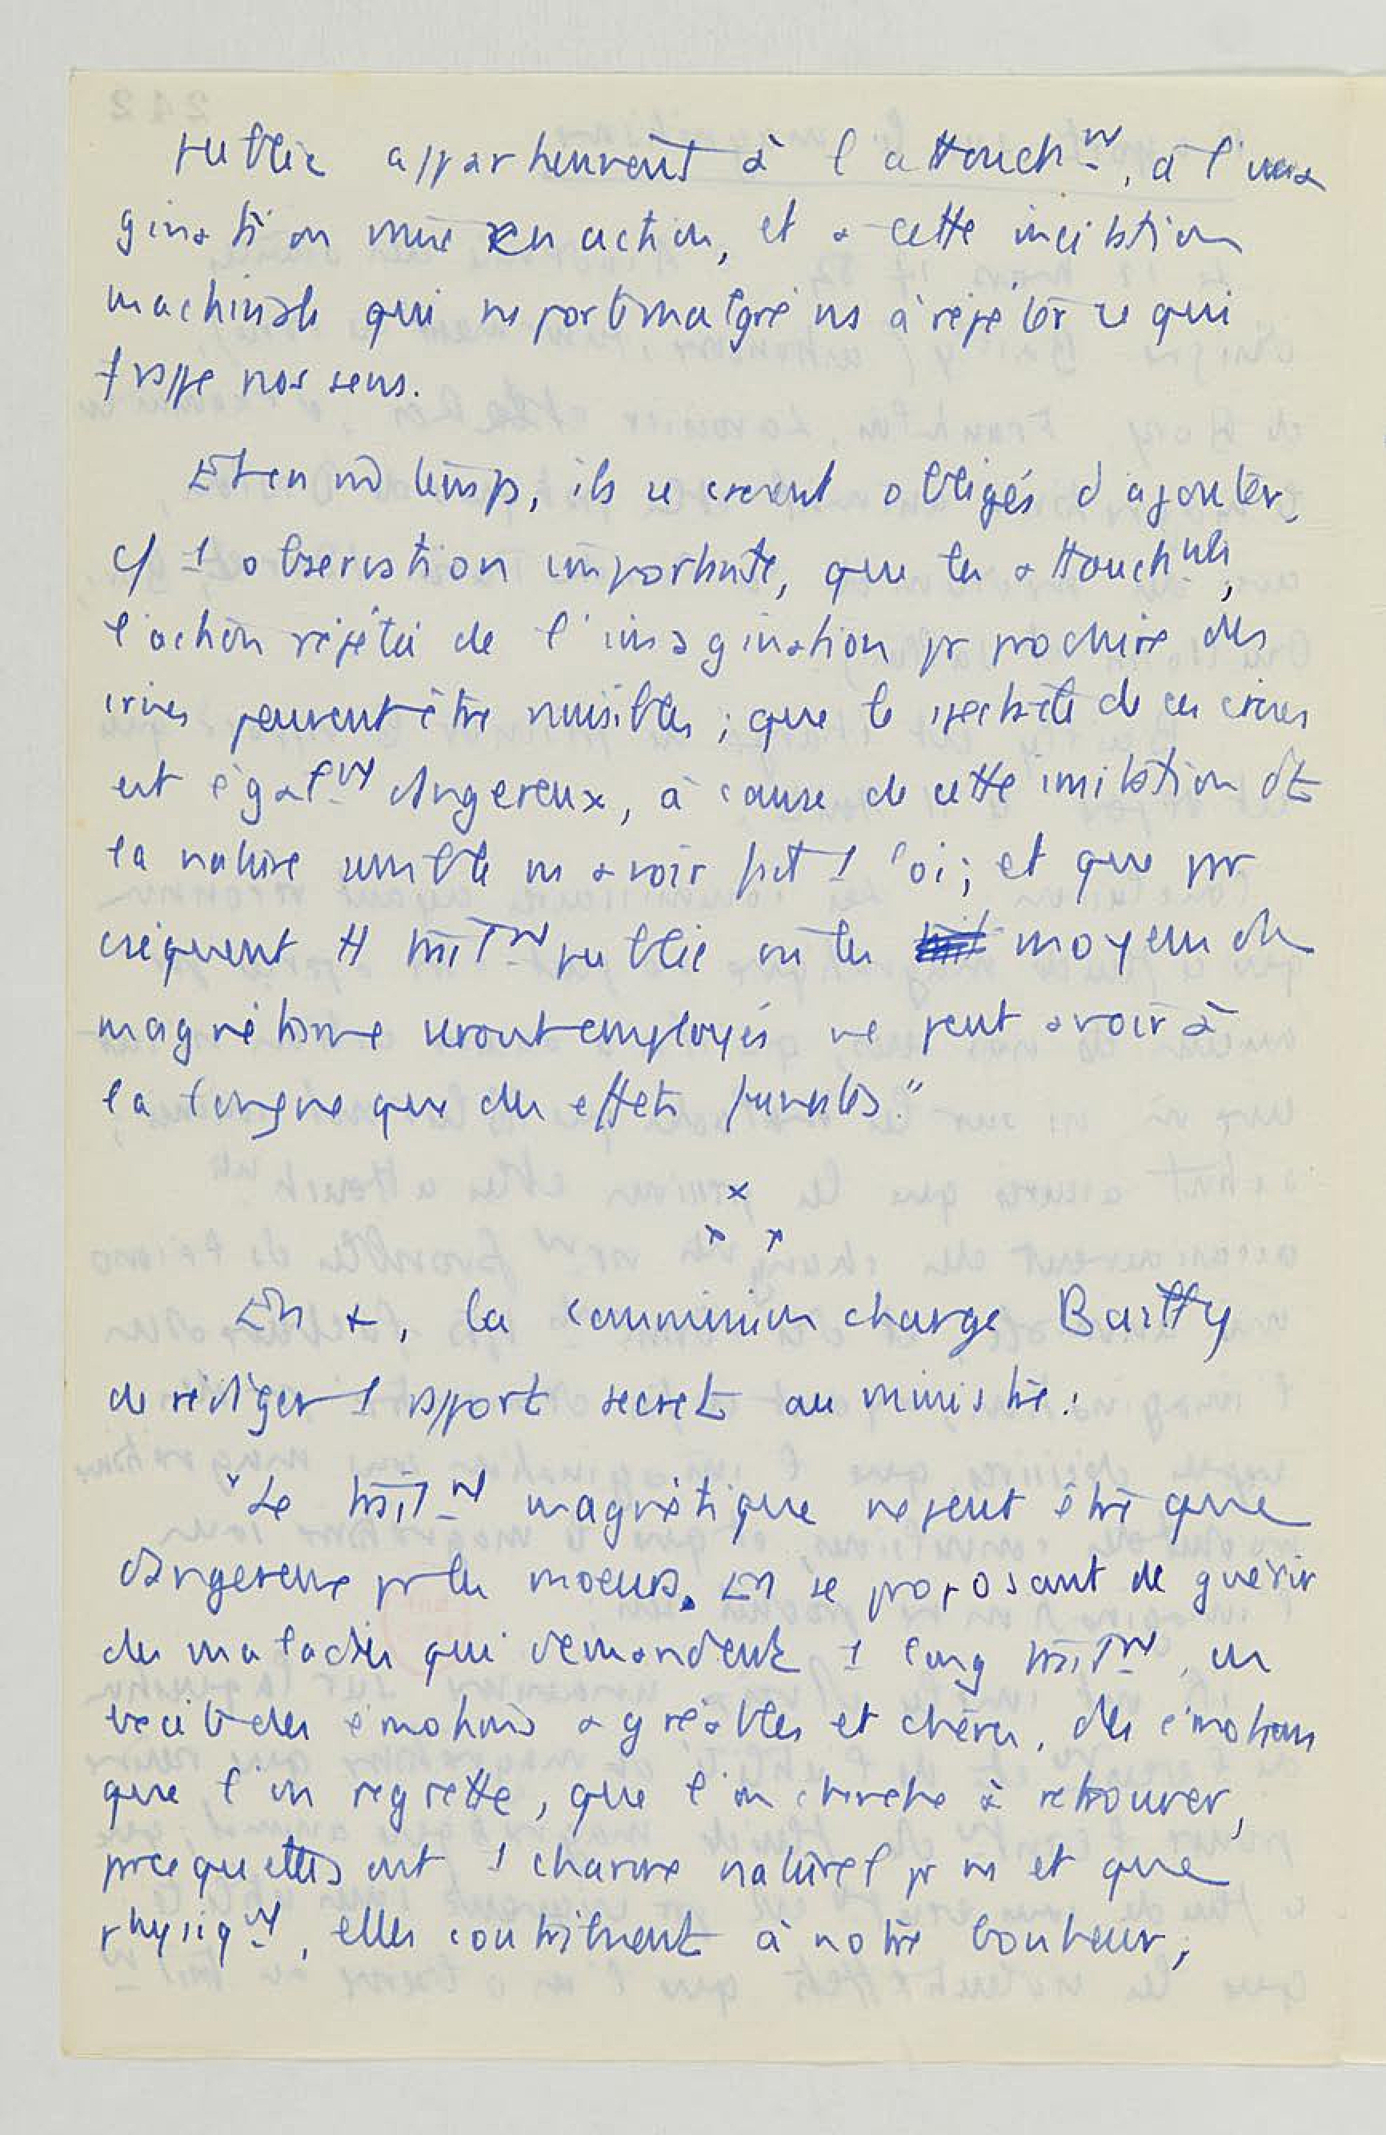 public appartiennent à l'attouchnt, à l'ima
gination mise en action, et à cette imitation
machinale qui ns porte malgré ns à répéter ce qui
frappe nos sens.
Et en m̂ temps, ils se croient obligés d'ajouter,
c/ 1 observation importante, que les attouchnts,
l'action répétée de l'imagination pr produire des
crises peuvent être nuisibles ; que le spectacle de ces crises
est égalnt dangereux, à cause de cette imitation dt
la nature semble ns avoir fait 1 loi ; et que pr
créquent tt traitnt public où les moyens du
magnétisme seront employés ne peut avoir à
la longue que des effets funestes."
x
x x
En +, la commission charge Bailly
de rédiger 1 rapport secret au ministre :
"Le traitnt magnétique ne peut être que
dangereux pr les moeurs. En se proposant de guérir
des maladies qui demandent 1 long traitnt, on
excite des émotions agréables et chères, des émotions
que l'on regrette, que l'on cherche à retrouver,
prcequ'elles ont 1 charme naturel pr ns et que
physiqnt, elles contribuent à notre bonheur ;